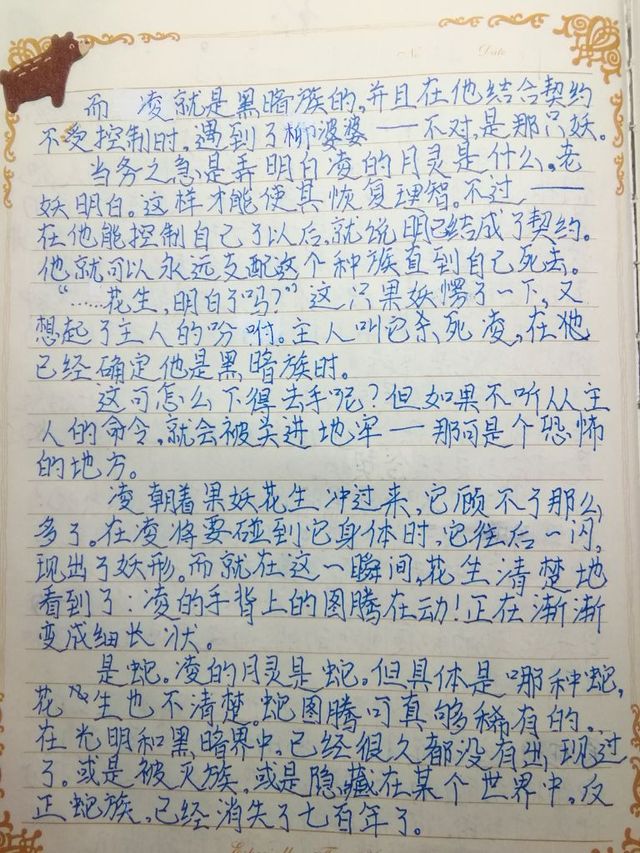 No Date
而 凌就是黑暗族的,并且在他结合契约
不受控制时,遇到了柳婆婆——不对,是那只妖。
当务之急,是弄明白凌的月灵是什么。老
妖明白。这样才能使其恢复理智。不过——
在他能控制自己了以后,就说明已结成了契约。
他就可以永远支配这个种族直到自己死去。
“……花生,明白了吗?”这只果妖愣了一下,又
想起了主人的吩咐。主人叫它杀死凌,在他
已经确定他是黑暗族时。
这可怎么下得去手呢?但如果不听从主
人的命令,就会被关进地牢——那可是个恐怖
的地方。
凌朝着果妖花生冲过来,它顾不了那么
多了。在凌将要碰到它身体时,它往后一闪,
现出了妖形。而就在这一瞬间,花生清楚地
看到了:凌的手背上的图腾在动!正在渐渐
变成细长状。
是蛇。凌的月灵是蛇。但具体是哪种蛇,
花生也不清楚。蛇图腾可真够稀有的。
在光明和黑暗界中,已经很久都没有出现过
了。或是被灭族,或是隐藏在某个世界中。反
正蛇族,已经消失了七百年了。